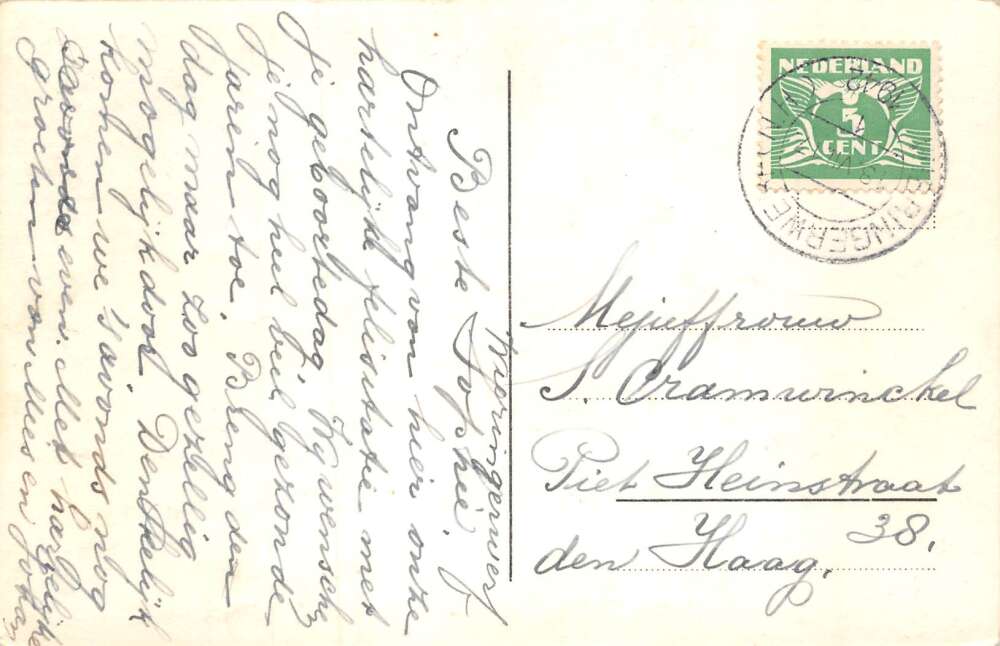 Wieringerwerf
Beste Sophie.
Ontvang van hier onze
hartelijke felisitatie met
je geboortedag Wij wensche
je nog heel veel gezonde
jaren toe. Breng den
dag maar zoo gezellig
mogelijk door Denkelijk
komen we 's avonds nog
even. Met hartelijke
groeten van Mies en Johan
NEDERLAND
3
CENT
WIERINGERWERF
1942
Mejuffrouw
S. Cramwinckel
Piet Heinstraat
38.
den Haag.